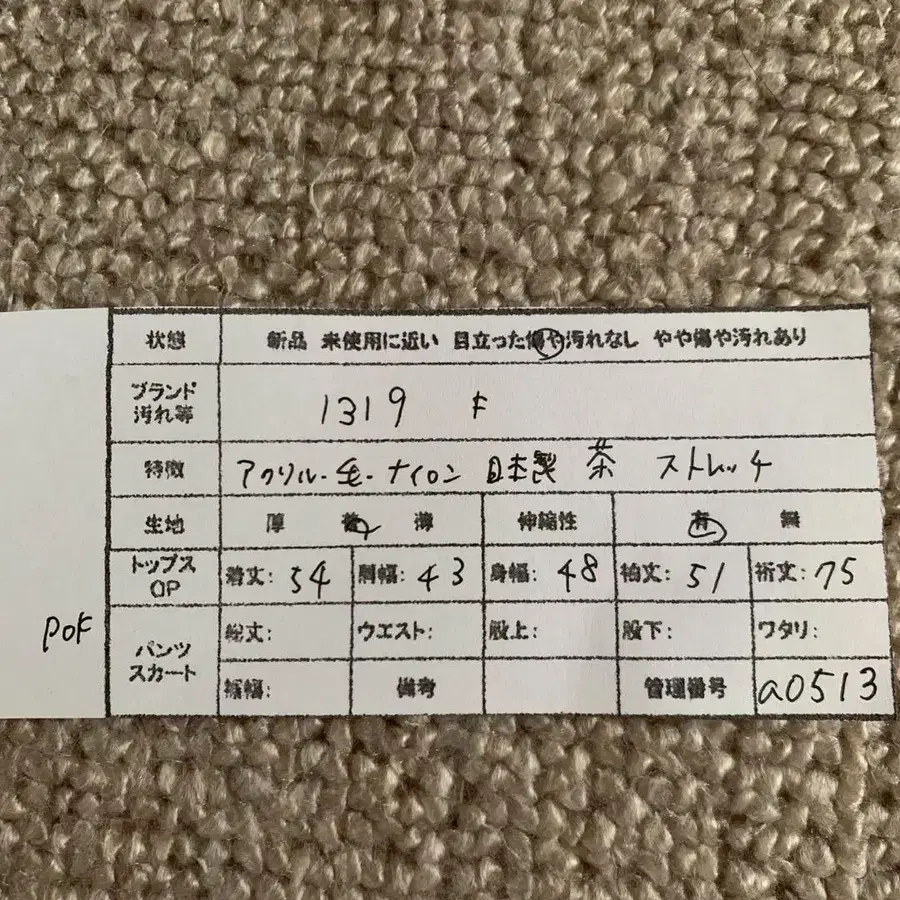 状態 新品 未使用に近い 目立った傷や汚れなし やや傷や汚れあり
ブランド 1319 F
汚れ等
特徴 アクリル・毛・ナイロン 日本製 茶 ストレッチ
生地 厚 普 薄 伸縮性 有 無
トップス 着丈: 54 肩幅: 43 身幅: 48 袖丈: 51 裄丈: 75
OP
POF
パンツ 総丈: ウエスト: 股上: 股下: ワタリ:
スカート 裾幅: 備考 管理番号 a0513